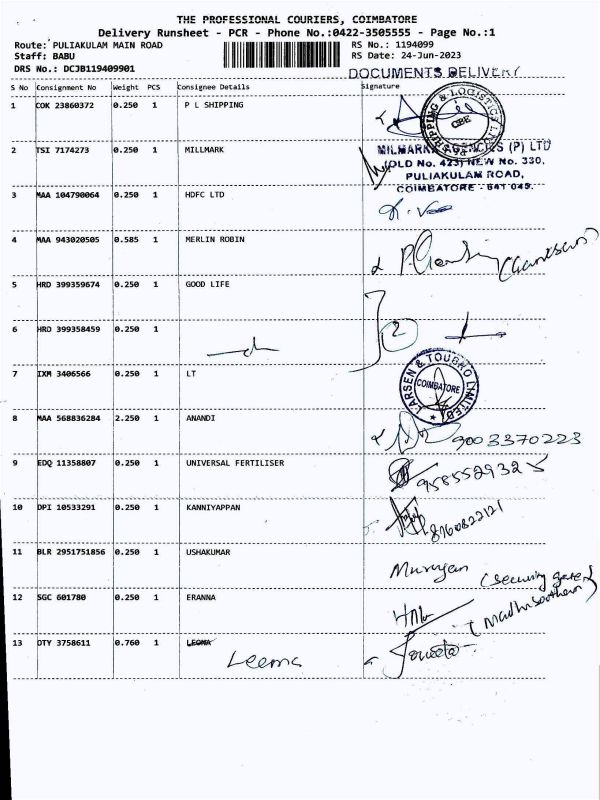 THE PROFESSIONAL COURIERS, COIMBATORE
Delivery Runsheet - PCR - Phone No.:0422-3505555 - Page No.:1
Route: PULIAKULAM MAIN ROAD RS No.: 1194099
Staff: BABU RS Date: 24-Jun-2023
DRS No.: DCJB119409901 DOCUMENTS DELIVERY
S No Consignment No Weight PCS Consignee Details Signature
1 COK 23860372 0.250 1 P L SHIPPING
SHIPPING & LOGISTICS CBE
2 TSI 7174273 0.250 1 MILLMARK
MILMARK AGENCIES (P) LTD
(OLD No. 423) NEW No. 330,
PULIAKULAM ROAD,
COIMBATORE - 641 045.
3 MAA 104790064 0.250 1 HDFC LTD
4 MAA 943020505 0.585 1 MERLIN ROBIN
5 HRD 399359674 0.250 1 GOOD LIFE
6 HRD 399358459 0.250 1
2
7 IXM 3406566 0.250 1 LT
LARSEN & TOUBRO LIMITED COIMBATORE
8 MAA 568836284 2.250 1 ANANDI
9003370223
9 EDQ 11358807 0.250 1 UNIVERSAL FERTILISER
9585529325
10 DPI 10533291 0.250 1 KANNIYAPPAN
8760822121
11 BLR 2951751856 0.250 1 USHAKUMAR
Murugan (security
12 SGC 601780 0.250 1 ERANNA
13 DTY 3758611 0.760 1 LEOMA
Leema